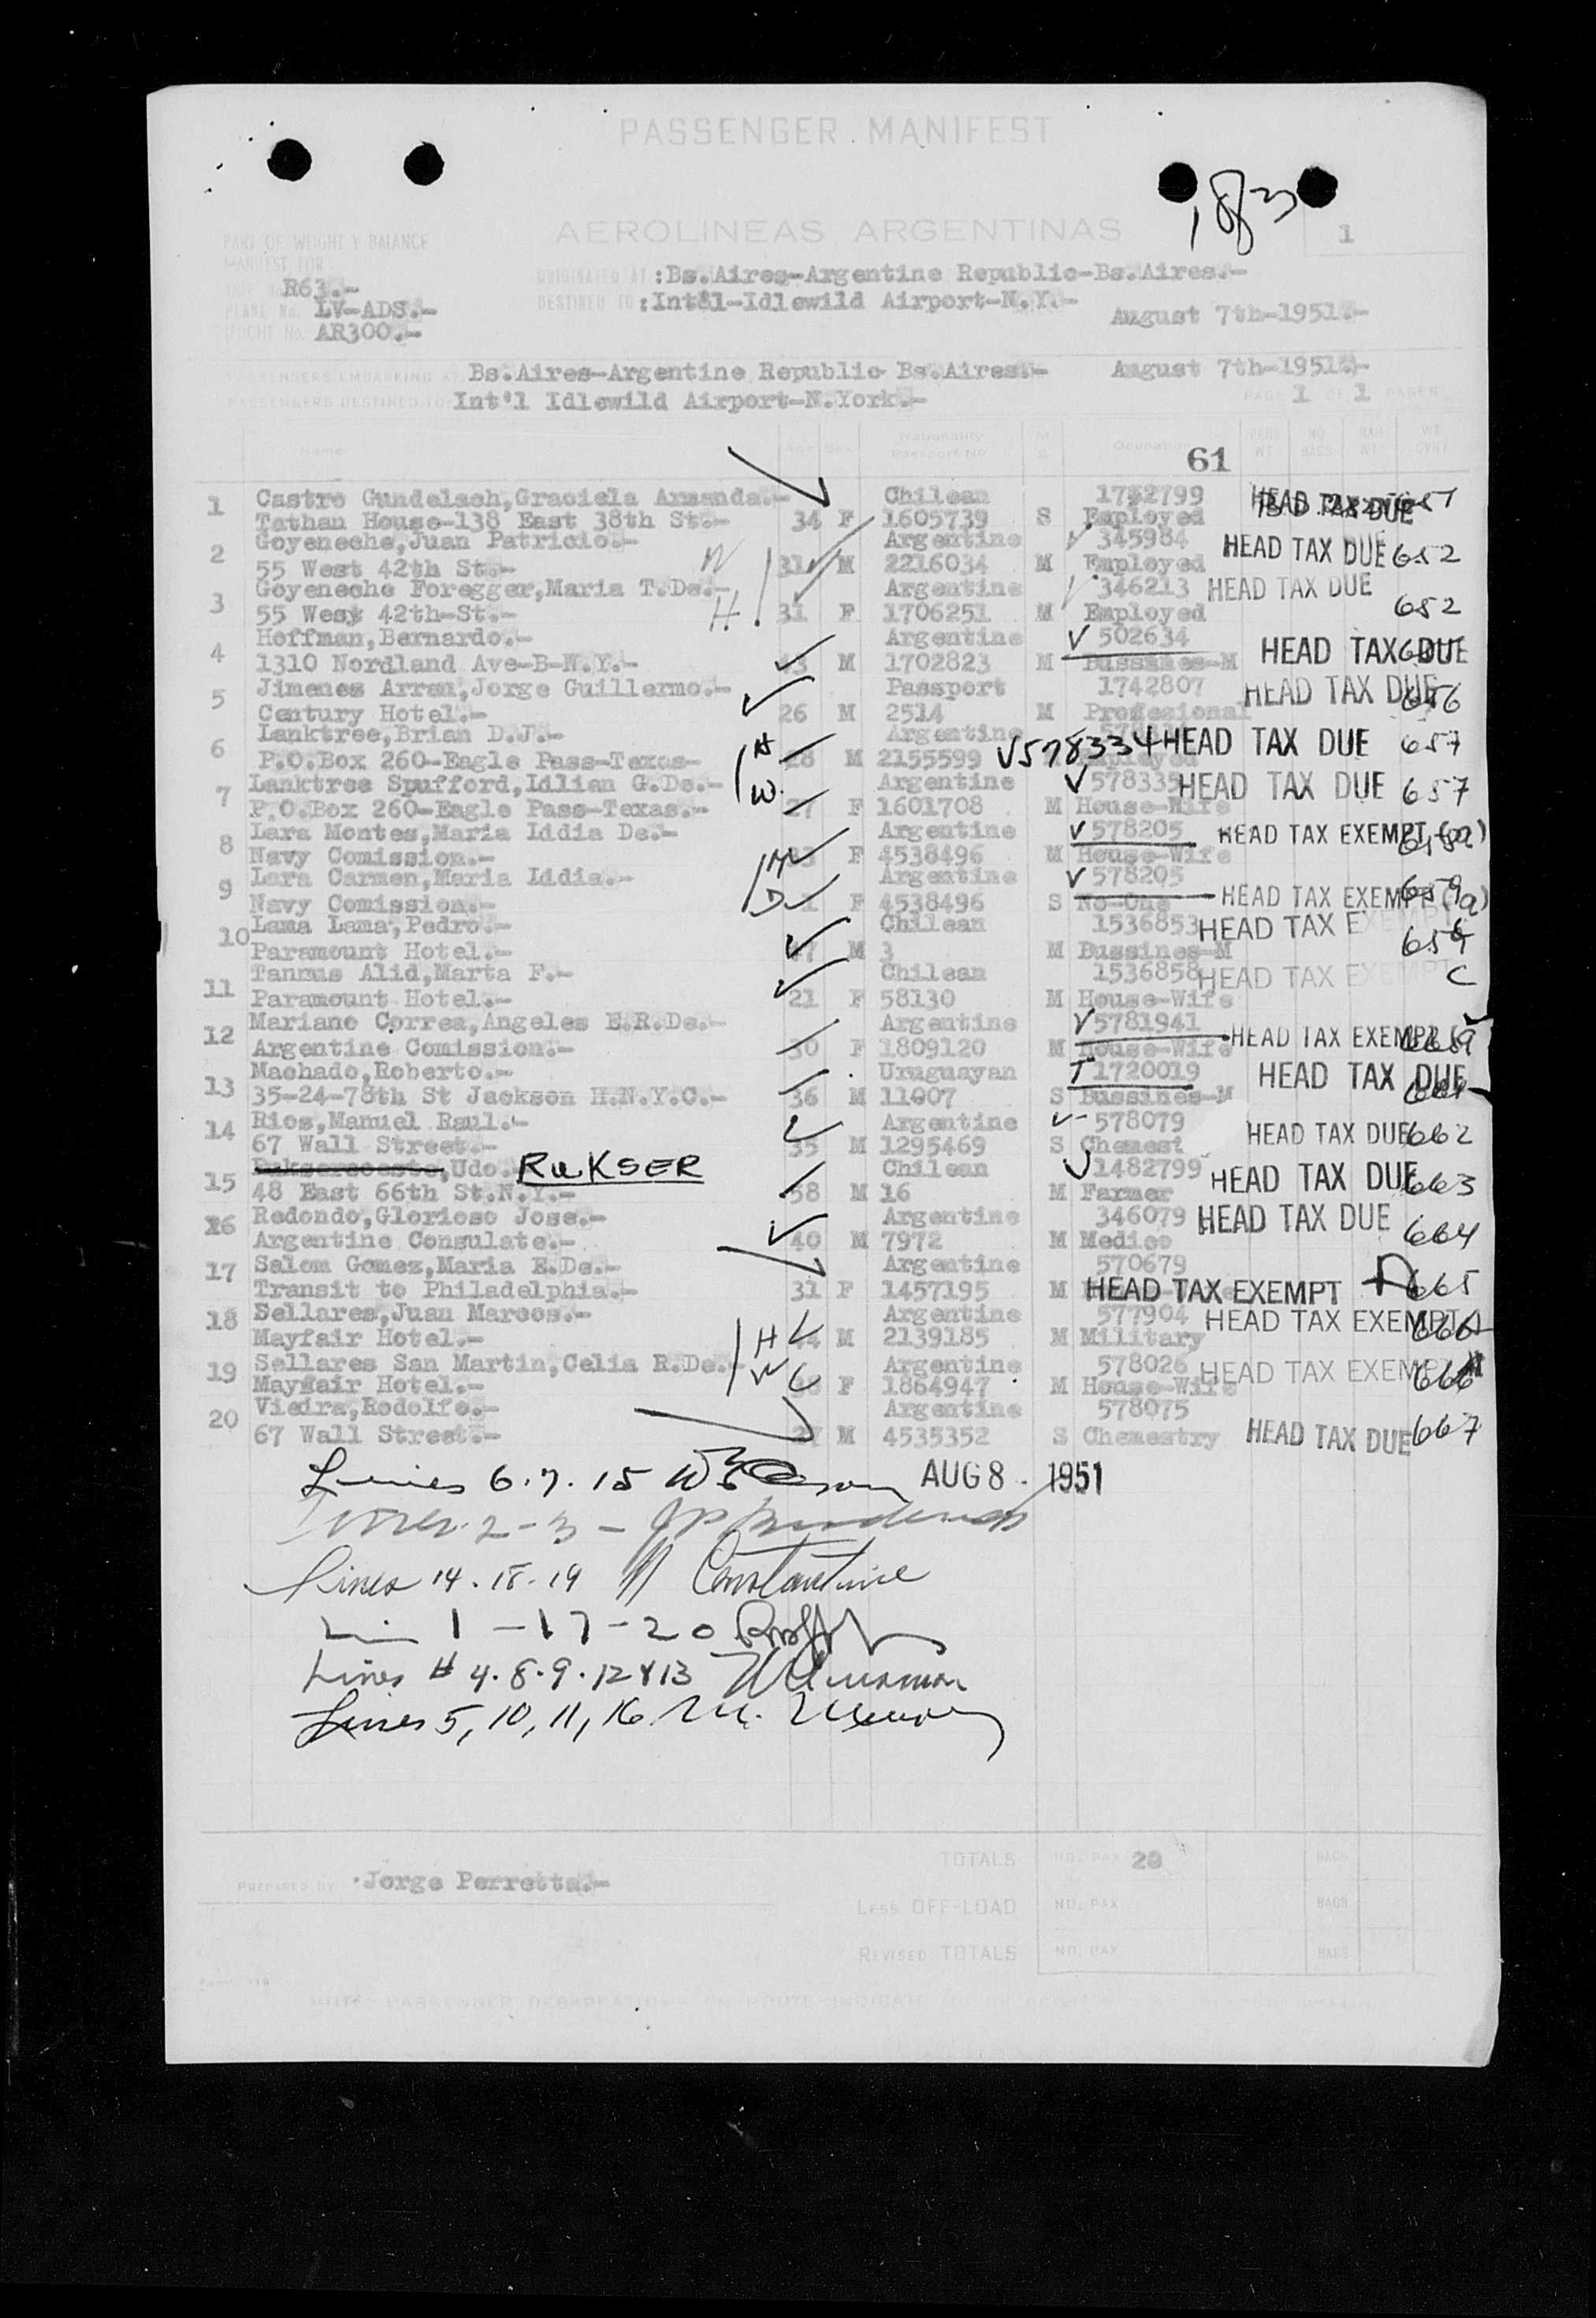 PASSENGER MANIFEST
1823
AEROLINEAS ARGENTINAS
1
PART OF WEIGHT Y BALANCE
MANIFEST FOR
R63.-
ORIGINATED AT :Bs.Aires-Argentine Republic-Bs.Aires.-
PLANE No. LV-ADS.-
DESTINED TO :Int'l-Idlewild Airport-N.Y.-
August 7th-1951.-
FLIGHT No. AR300.-
PASSENGERS EMBARKING AT Bs.Aires-Argentine Republic Bs.Aires.- August 7th-1951.-
PASSENGERS DESTINED TO Int'l Idlewild Airport-N.York.- PAGE 1 OF 1 PAGES
Name Age Sex Nationality Passport No M S Ocupation PERS WT NO BAGS BAG WT WT
61
1 Castro Gundelach,Graciela Armanda.- Chilean 1752799 HEAD TAX DUE
Tathan House-138 East 38th St.- 34 F 1605739 S Employed
2 Goyeneche,Juan Patricio.- Argentine 345984 HEAD TAX DUE 652
55 West 42th St.- W 31 M 2216034 M Employed
3 Goyeneche Foregger,Maria T.De.- Argentine 346213 HEAD TAX DUE
55 West 42th-St.- H. 31 F 1706251 M Employed 652
4 Hoffman,Bernardo.- Argentine 502634 HEAD TAX DUE
1310 Nordland Ave-B-N.Y.- M 1702823 M Bussines-M
5 Jimenes Arran,Jorge Guillermo.- Passport 1742807 HEAD TAX DUE 656
Century Hotel.- 26 M 2514 M Profesional
6 Lanktree,Brian D.J.- Argentine 578334 HEAD TAX DUE 657
P.O.Box 260-Eagle Pass-Texas- H 28 M 2155599 Employed
7 Lanktree Spufford,Idlian G.De.- W. Argentine 578335 HEAD TAX DUE 657
P.O.Box 260-Eagle Pass-Texas.- 27 F 1601708 M House-Wife
8 Lara Montes,Maria Iddia De.- Argentine 578205 HEAD TAX EXEMPT (a)
Navy Comission.- M 33 F 4538496 M House-Wife
9 Lara Carmen,Maria Iddia.- Argentine 578205 HEAD TAX EXEMPT (a) 658
Navy Comission.- D F 4538496 S No-One
10 Lama Lama,Pedro.- Chilean 1536853 HEAD TAX EXEMPT
Paramount Hotel.- M 3 M Bussines-M 659
11 Tannus Alid,Marta F.- Chilean 1536858 HEAD TAX EXEMPT C
Paramount Hotel.- 21 F 58130 M House-Wife
12 Mariano Correa,Angeles E.R.De.- Argentine 5781941 HEAD TAX EXEMPT
Argentine Comission.- 30 F 1809120 M House-Wife
13 Machado,Roberto.- Uruguayan T 1720019 HEAD TAX DUE
35-24-78th St Jackson H.N.Y.C.- 36 M 11007 S Bussines-M
14 Rios,Manuel Raul.- Argentine 578079 HEAD TAX DUE 662
67 Wall Street.- 35 M 1295469 S Chemest
15 Udo.- RUKSER Chilean 1482799 HEAD TAX DUE 663
48 East 66th St.N.Y.- 58 M 16 M Farmer
16 Redondo,Glorioso Jose.- Argentine 346079 HEAD TAX DUE 664
Argentine Consulate.- 40 M 7972 M Medico
17 Salom Gomez,Maria E.De.- Argentine 570679
Transit to Philadelphia.- 31 F 1457195 M HEAD TAX EXEMPT A 665
18 Sellares,Juan Marcos.- Argentine 577904 HEAD TAX EXEMPT A 666
Mayfair Hotel.- H 44 M 2139185 M Military
19 Sellares San Martin,Celia R.De.- W Argentine 578026 HEAD TAX EXEMPT A 666
Mayfair Hotel.- F 1864947 M House-Wife
20 Vieira,Rodolfo.- Argentine 578075
67 Wall Street.- 27 M 4535352 S Chemestry HEAD TAX DUE 667
Lines 6.7.15 AUG 8 1951
Lines 2-3-
Lines 14.18.19 Constantine
1-17-20
Lines # 4.8.9.12 & 13
Lines 5, 10, 11, 16
TOTALS NO. PAX 20 BAGS
PREPARED BY Jorge Perretta.-
LESS OFF-LOAD NO. PAX BAGS
REVISED TOTALS NO. PAX BAGS